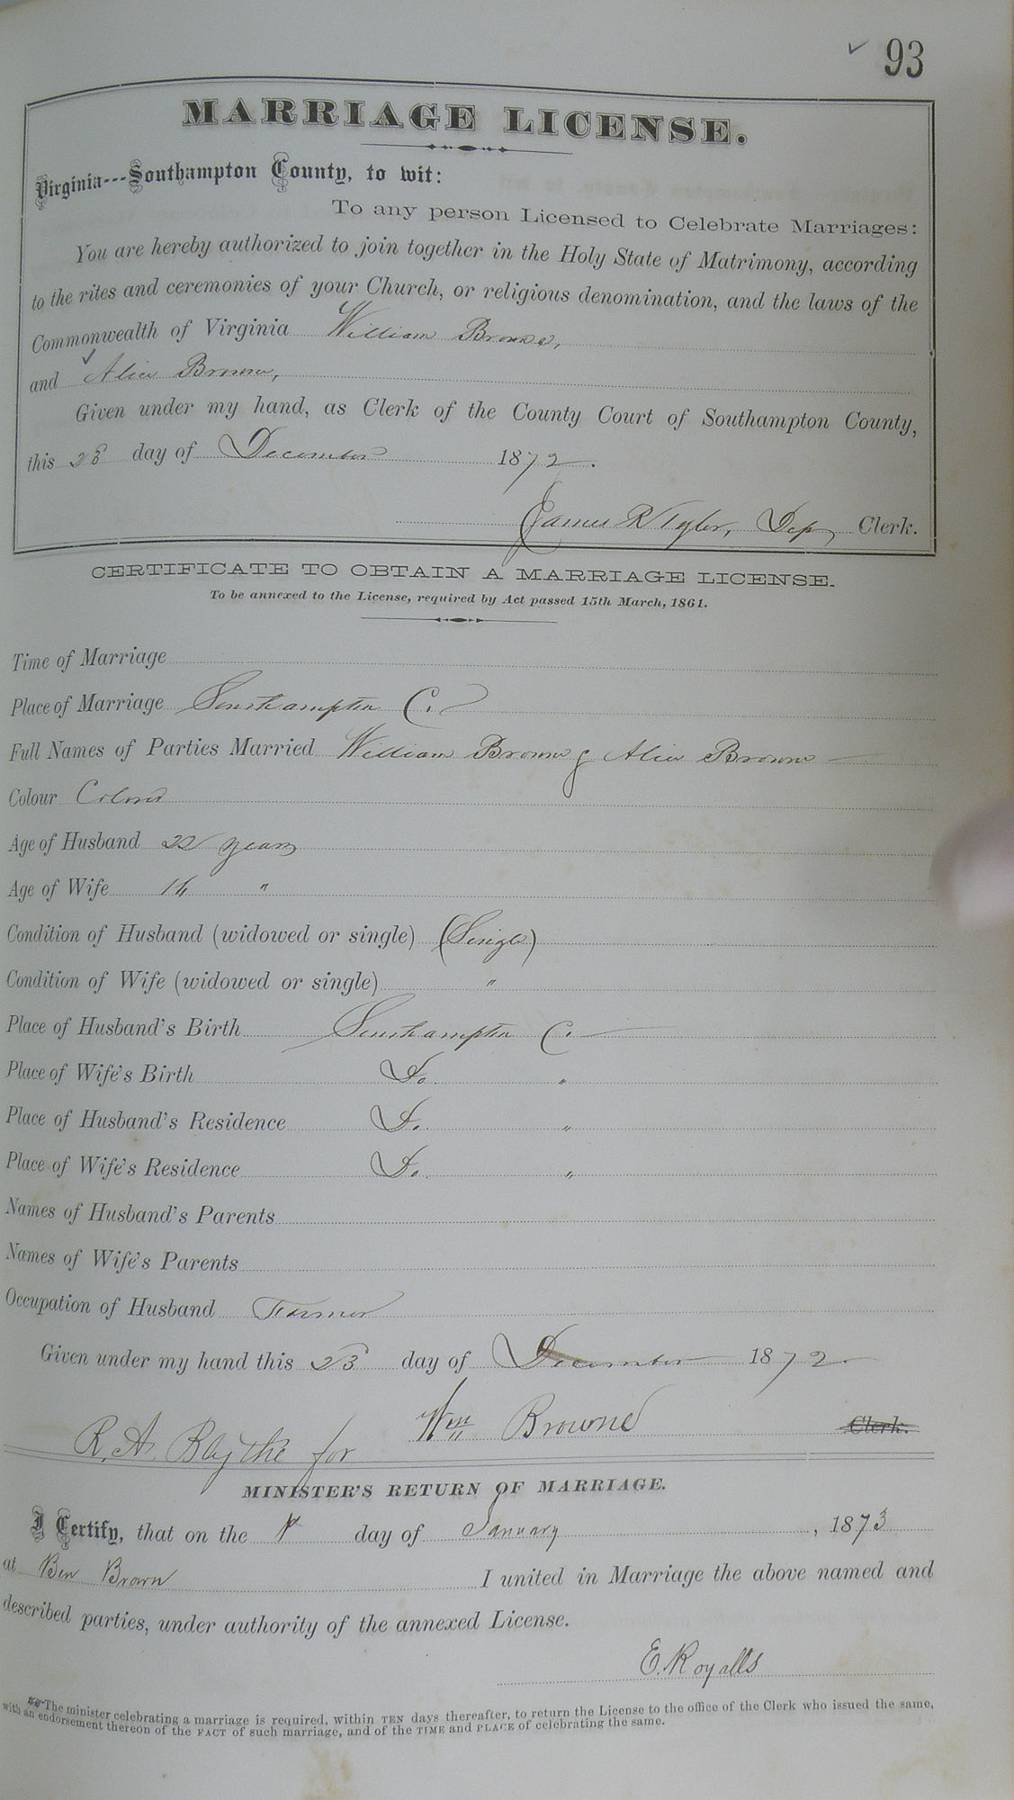 ✓ 93
MARRIAGE LICENSE.
Virginia---Southampton County, to wit:
To any person Licensed to Celebrate Marriages:
You are hereby authorized to join together in the Holy State of Matrimony, according
to the rites and ceremonies of your Church, or religious denomination, and the laws of the
Commonwealth of Virginia William Browne,
and Alice Browne,
Given under my hand, as Clerk of the County Court of Southampton County,
this 28 day of December 1872.
James R Tyler, Dep, Clerk.
CERTIFICATE TO OBTAIN A MARRIAGE LICENSE.
To be annexed to the License, required by Act passed 15th March, 1861.
Time of Marriage
Place of Marriage Southampton C.
Full Names of Parties Married William Browne & Alice Browne
Colour Colored
Age of Husband 22 years
Age of Wife "
Condition of Husband (widowed or single) (Single)
Condition of Wife (widowed or single) "
Place of Husband's Birth Southampton C.
Place of Wife's Birth Do. "
Place of Husband's Residence Do. "
Place of Wife's Residence Do. "
Names of Husband's Parents
Names of Wife's Parents
Occupation of Husband Farmer
Given under my hand this 28 day of December 1872.
Wm Browne Clerk.
R. A. Blythe for
MINISTER'S RETURN OF MARRIAGE.
I Certify, that on the day of January, 1873
at Ben Brown I united in Marriage the above named and
described parties, under authority of the annexed License.
E. Royalls
The minister celebrating a marriage is required, within TEN days thereafter, to return the License to the office of the Clerk who issued the same,
with an endorsement thereon of the FACT of such marriage, and of the TIME and PLACE of celebrating the same.